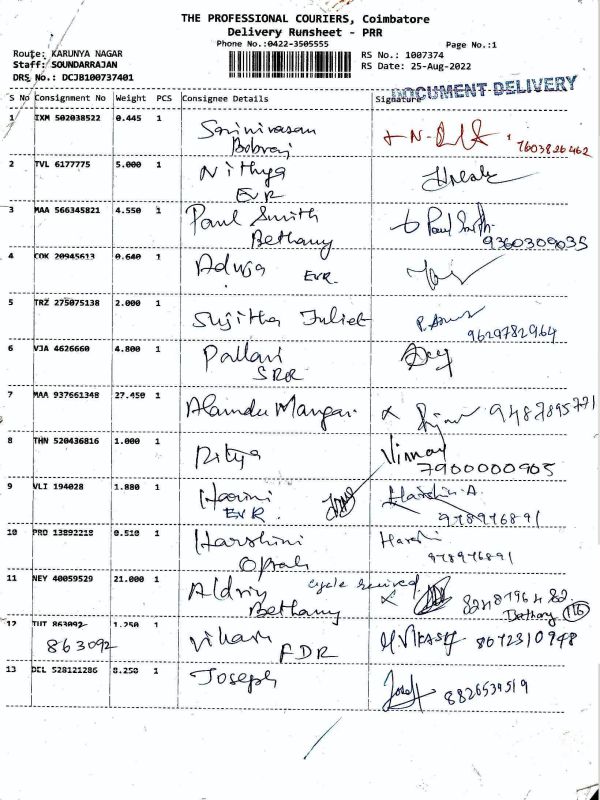 THE PROFESSIONAL COURIERS, Coimbatore
Delivery Runsheet - PRR
Phone No.:0422-3505555
Page No.:1
Route: KARUNYA NAGAR
RS No.: 1007374
Staff: SOUNDARRAJAN
RS Date: 25-Aug-2022
DRS No.: DCJB100737401
DOCUMENT DELIVERY
S No Consignment No Weight PCS Consignee Details Signature
1 IXM 502038522 0.445 1 Srinivasan
Boboraj 7603826462
2 TVL 6177775 5.000 1 Nithya
EVR
3 MAA 566345821 4.550 1 Paul Smith Paul Smith
Bethany 9360309035
4 COK 20945613 0.640 1 Adwja EVR
5 TRZ 275075138 2.000 1 Sujitha Juliet
9629782964
6 VJA 4626660 4.800 1 Pallavi
SRR
7 MAA 937661348 27.450 1 Alamdu Mangai 9487895771
8 THN 520436816 1.000 1 Ritya Vinnay
7900000905
9 VLI 194028 1.880 1 Harini Harshini.A
EVR. 978976891
10 PRO 13892218 0.510 1 Harshini
Oprah 978976891
11 NEY 40059529 21.000 1 Aldrin cycle received
Bethany 8248196482
Bethany 116
12 TUT 863092 1.250 1 Vikas VIKASH 8072310948
863092 FDR
13 DEL 528121286 8.250 1 Joseph
8826539519